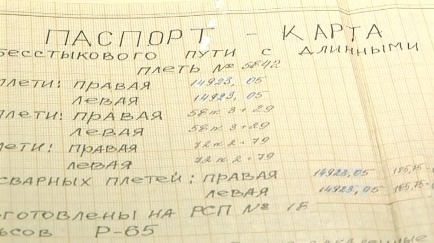 ПАСПОРТ - КАРТА
БЕССТЫКОВОГО ПУТИ С ДЛИННЫМИ
ПЛЕТЬ № 5Е42
ПЛЕТИ: ПРАВАЯ 14923,05
ЛЕВАЯ 14923,05
ПЛЕТИ: ПРАВАЯ 58 п. 3 + 29
ЛЕВАЯ 58 п. 3 + 29
ПЛЕТИ: ПРАВАЯ 72 п. 2 + 79
ЛЕВАЯ 72 п. 2 + 79
СВАРНЫХ ПЛЕТЕЙ: ПРАВАЯ 14923,05
ЛЕВАЯ 14923,05
ИЗГОТОВЛЕНЫ НА РСП № 18
ЛЬСОВ Р-65